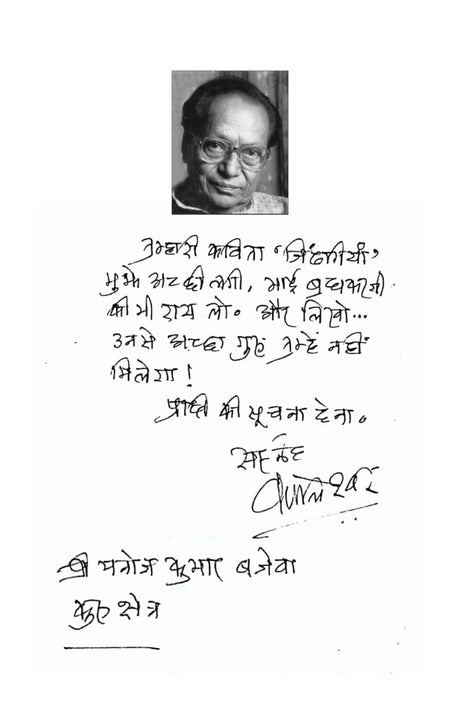 तुम्हारी कविता 'ज़िंदगियाँ'
मुझे अच्छी लगी, भाई
की भी राय लो。 और लिखो...
उनसे अच्छा गुरु तुम्हें नहीं
मिलेगा!
प्राप्ति की सूचना देना。
सस्नेह
कमलेश्वर
श्री मनोज कुमार बजेवा
कुरुक्षेत्र